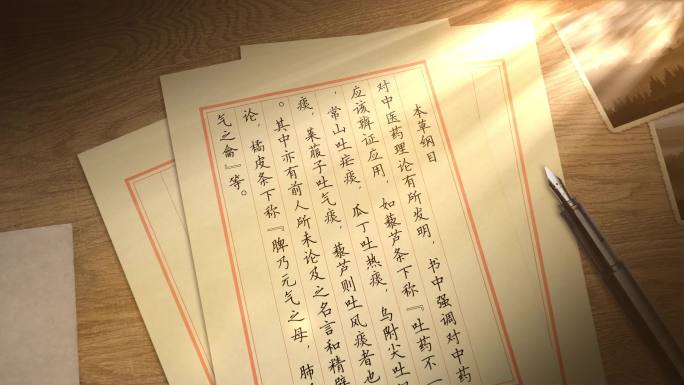 本草纲目
对中医药理论有所发明，书中强调对中药
应该辨证应用，如藜芦条下称『吐药不一
，常山吐疟痰，瓜丁吐热痰，乌附尖吐
痰，莱菔子吐气痰，藜芦则吐风痰者也
。其中亦有前人所未论及之名言和精辟
论，橘皮条下称『脾乃元气之母，肺
气之龠』等。